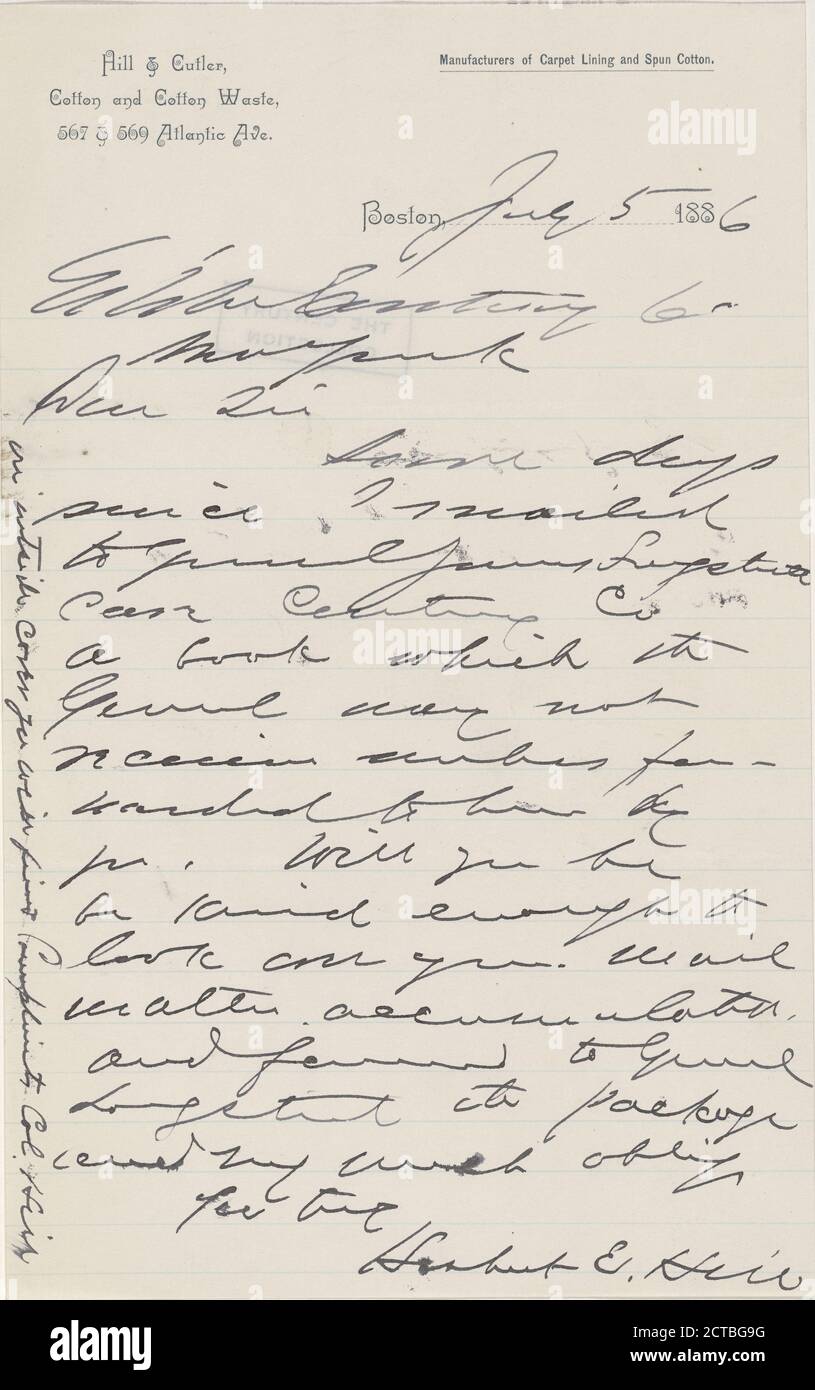 Hill & Cutler,
Cotton and Cotton Waste,
567 & 569 Atlantic Ave.
Manufacturers of Carpet Lining and Spun Cotton.
Boston, July 5 1886
Century Co
New York
Dear Sir
Some days
since I mailed
to General James Longstreet
Care Century Co
a book which the
General may not
receive unless for-
warded to him by
you. Will you be
be kind enough to
look over your mail
matter accumulated,
and forward to Genrl
Longstreet the package
and very much oblige
You truly
Herbert E. Hill
on outside cover you will find Compliments Col. Hill
THE CENTURY
COLLECTION
alamy
a
Image ID: 2CTBG9G
www.alamy.com